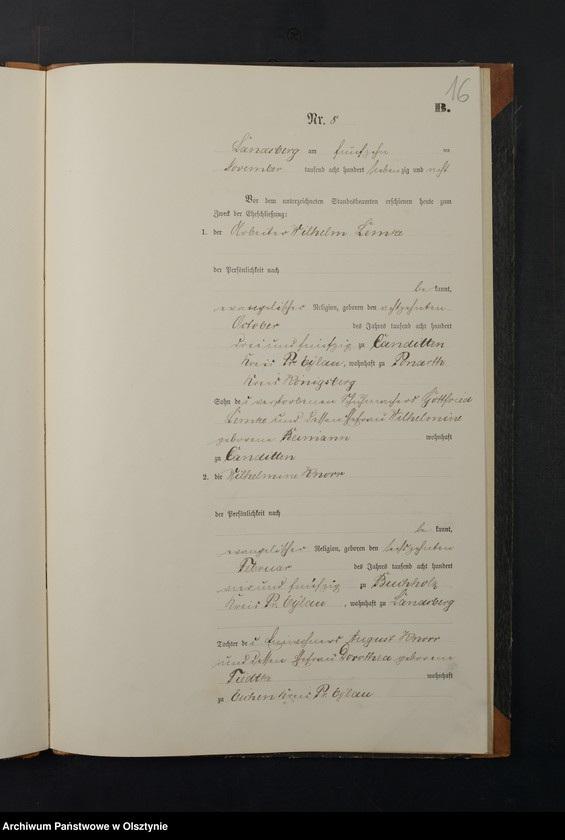 16
B.
Nr. 8
Landsberg am fünfzehn ten
November tausend acht hundert siebenzig und acht
Vor dem unterzeichneten Standesbeamten erschienen heute zum
Zweck der Eheschließung:
1. der Arbeiter Wilhelm Lemke
der Persönlichkeit nach
be kannt,
evangelischer Religion, geboren den achtzehnten
October des Jahres tausend acht hundert
drei und fünfzig zu Canditten
Kreis Pr. Eylau, wohnhaft zu Ponarth
Kreis Königsberg
Sohn des verstorbenen Schuhmachers Gottfried
Lemke und dessen Ehefrau Wilhelmine
geborene Reimann wohnhaft
zu Canditten
2. die Wilhelmine Knorr
der Persönlichkeit nach
be kannt,
evangelischer Religion, geboren den sechszehnten
Februar des Jahres tausend acht hundert
vier und fünfzig zu Buchholz
Kreis Pr. Eylau, wohnhaft zu Landsberg
Tochter des Einwohners August Knorr
und dessen Ehefrau Dorothea geborene
wohnhaft
zu Eichen Kreis Pr. Eylau
Archiwum Państwowe w Olsztynie